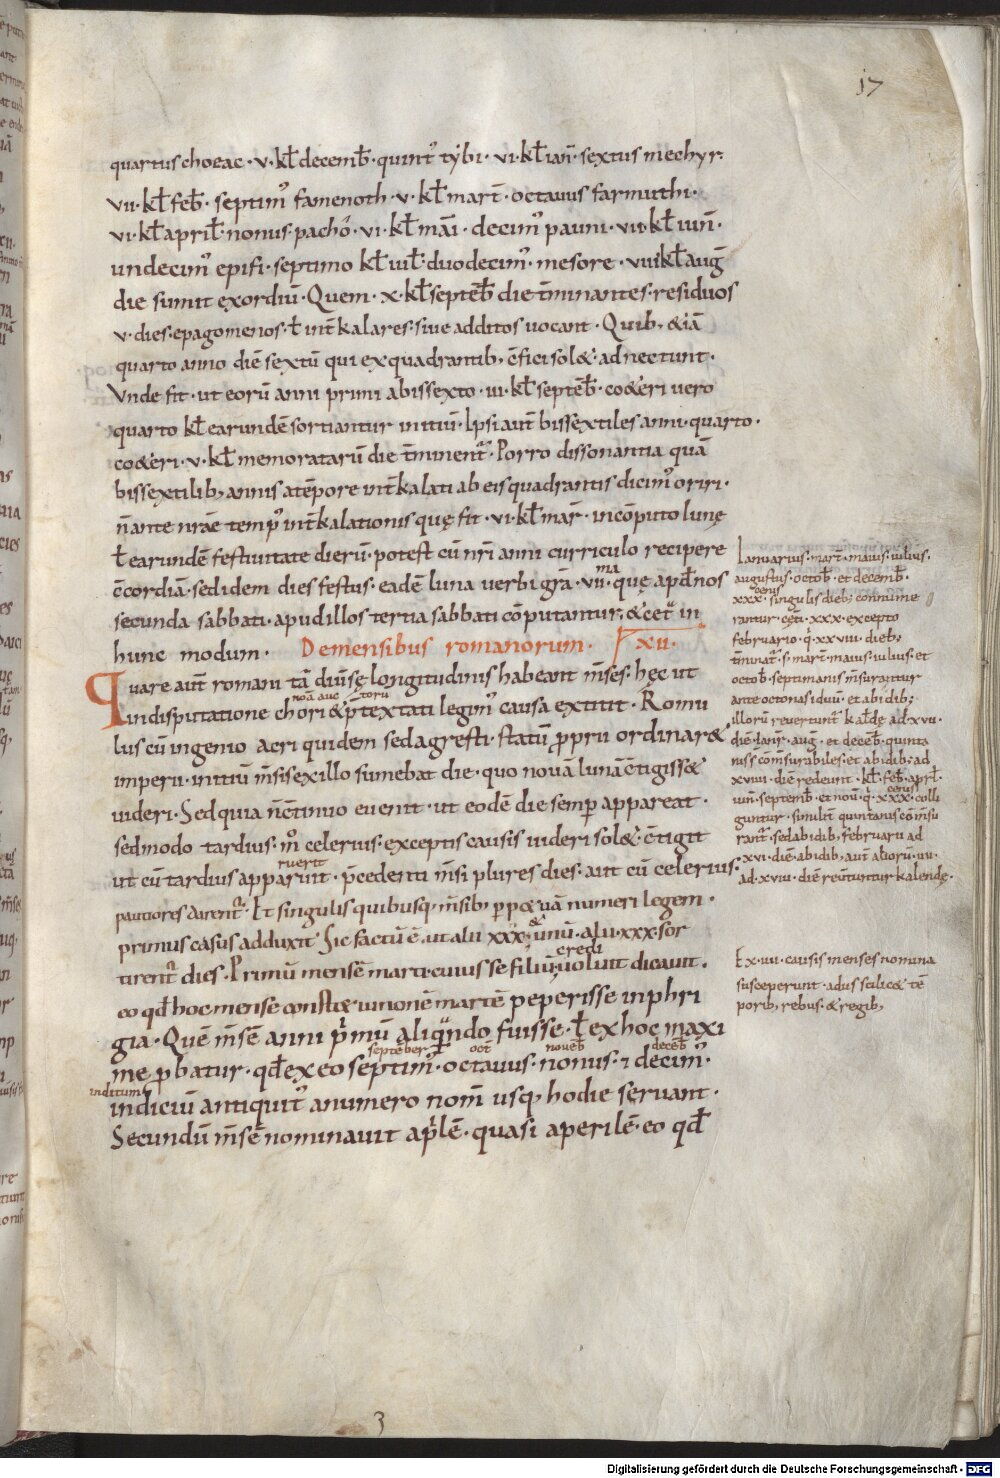 17
quartus choeac · v · kł decemƀ · quint᷒ tẏbi · vi · kł ian̄ · sextus mechyr ·
vii · kł feƀ · septim᷒ famenoth · v · kł mar̄t · octauus farmuthi ·
vi · kł aprił · nonus · pachō · vi · kł māi · decim᷒ pauni · vii · kł iun̄ ·
undecim᷒ epifi · septimo kł iuł · duodecim᷒ · mesore · viii kł aug̅
die sumit exordiū · Quem · x · kł septēƀ die t̄minantes · residuos
v · dies · epagomenos · ł int̄kalares · siue additos uocant · Quib; &iā
quarto anno diē sextū qui ex quadrantib; c̄fici sol& · adnectunt ·
Vnde fit · ut eorū anni primi a bissexto · iii · kł septēƀ · co&eri vero
quarto kł earundē sortiantur initiū · Ipsi aut̄ bissextiles anni · quarto ·
co&eri · v · kł memoratarū die t̄minent᷑ · Porro dissonantia quā
bissextilib; annis a tēpore int̄kalati ab eis quadrantis dicim᷒ oriri ·
n̄ ante nr̄ae temp᷒ int̄kalationis quę fit · vi · kł mar̄ · in cōputo lunę
ł earundē festiuitate dierū · potest cū nr̄i anni curriculo recipere
c̄cordiā · sed idem dies festus · eadē luna uerbi gr̄a · vii · ma quę apđ nos
secunda sabbati · apud illos tertia sabbati cōputantur · & cet᷑ in
hunc modum · De mensibus romanorum · xii ·
Quare aut̄ romani tā diūsę longitudinis habeant m̄ses · hęc ut
noā auc̄ toru
in disputatione chori & p̄textati legim᷒ causa extitit · Romu
lus cū ingenio acri quidem sed agresti · statū ꝓprii ordinar&
imperii · initiū m̄sis ex illo sumebat die · quo nouā lunā c̄tigiss&
uideri · Sed quia n̄ c̄tinuo euenit · ut eodē die semꝑ appareat ·
sed modo tardius · m̊ celerius · exceptis causis uideri sol& · c̄tigit
ruerit
ut cū tardius apparuit · p̄cedenti m̄si plures dies · aut cū celerius ·
pauciores darent᷑ · Et singulis quibusq; m̄sib; ꝑp&uā numeri legem ·
primus casus adduxit · Sic factū ē · ut alii xxx · & unū · alii · xxx · sor
credi
tirent᷑ dies · Primū mensē marti · cuius se filiū · uoluit dicauit ·
eo qđ hoc mense constet iunonē martē peperisse in phri
gia · Quē m̄sē anni p̄mū aliqndo fuisse · ł ex hoc maxi
september oct̄ nouēƀ decēƀ
me ꝓbatur · qđ ex eo septim᷒ · octauus · nonus · ⁊ decim᷒ ·
inditum
indiciū antiquit᷒ a numero nom̄ usq; hodie seruant ·
Secundū m̄sē nominauit ap̄lē · quasi aperilē · eo qđ
Ianuarius · mar̄t · maius · iulius ·
augustus · octoƀ · et decemƀ ·
cenis
xxx · singulis dieb; connume
rantur · cęt̄i · xxx · excepto
februario · q̇ xxviii · dieb;
t̄minat᷑ · s · mar̄t · maius · iulius · et
octoƀ · septimanis m̄surantur
ante octonas iduū · et ab idib;
illorū reuertunt᷑ kałdę ad · xvii ·
diē · Ianr̄ · aug̅ · et decēƀ · quinta
nis s com̄surabiles · et ab idib; ad
xviiii · diē redeunt · kł · feƀ · apr̄ł ·
cenis
iun̄ · septemƀ · et nou̅ · q̇ · xxx · colli
guntur · simulit̄ quintanis com̄su
rant᷑ · sed ab idib; februarii ad
xvi · diē · ab idib; aut̄ aliorū · iii ·
ad · xviii · diē reūtuntur kalendę ·
Ex · iiii · causis menses nomina
susceperunt · a diis · scilic& · tē
porib; rebus · & regib;
3
Digitalisierung gefördert durch die Deutsche Forschungsgemeinschaft - DFG